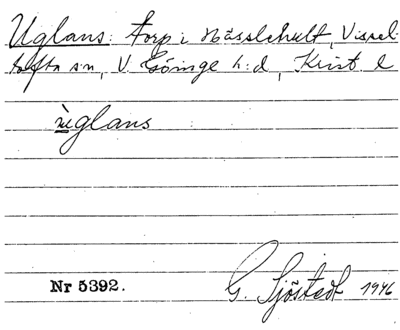 Uglans: torp i Hässlehult, Vissel-
tofta sn, V. Göinge h:d, Krist. l
ùglans
Nr 5392.
G. Sjöstedt 1946